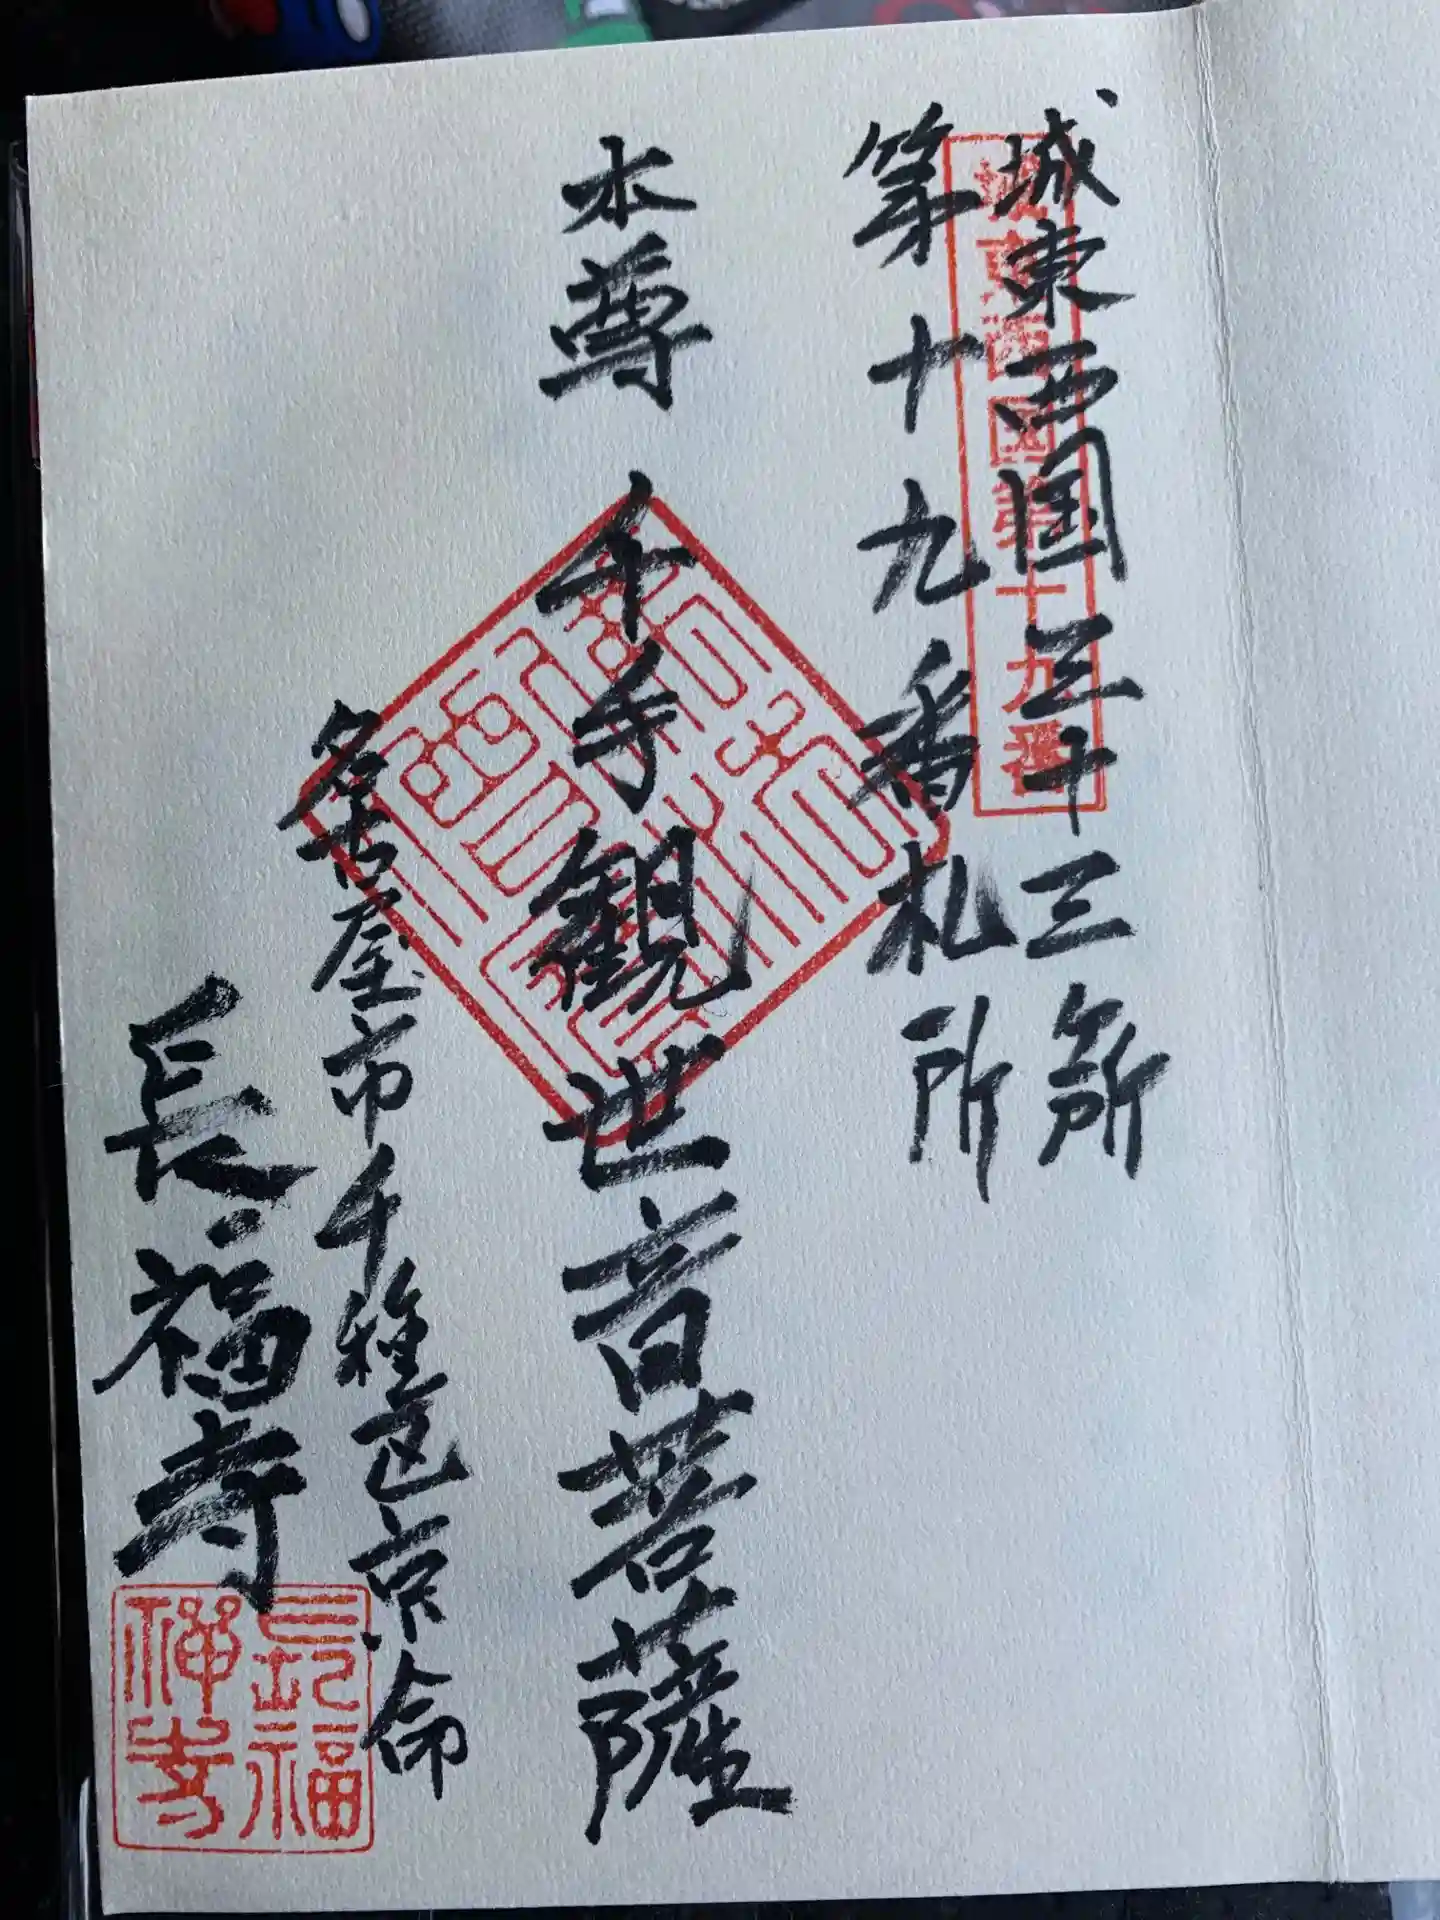 城東西国三十三ヶ所
第十九番札所
城東西国第十九番
本尊 千手観世音菩薩
名古屋市千種区京命
長福寺
長福禅寺